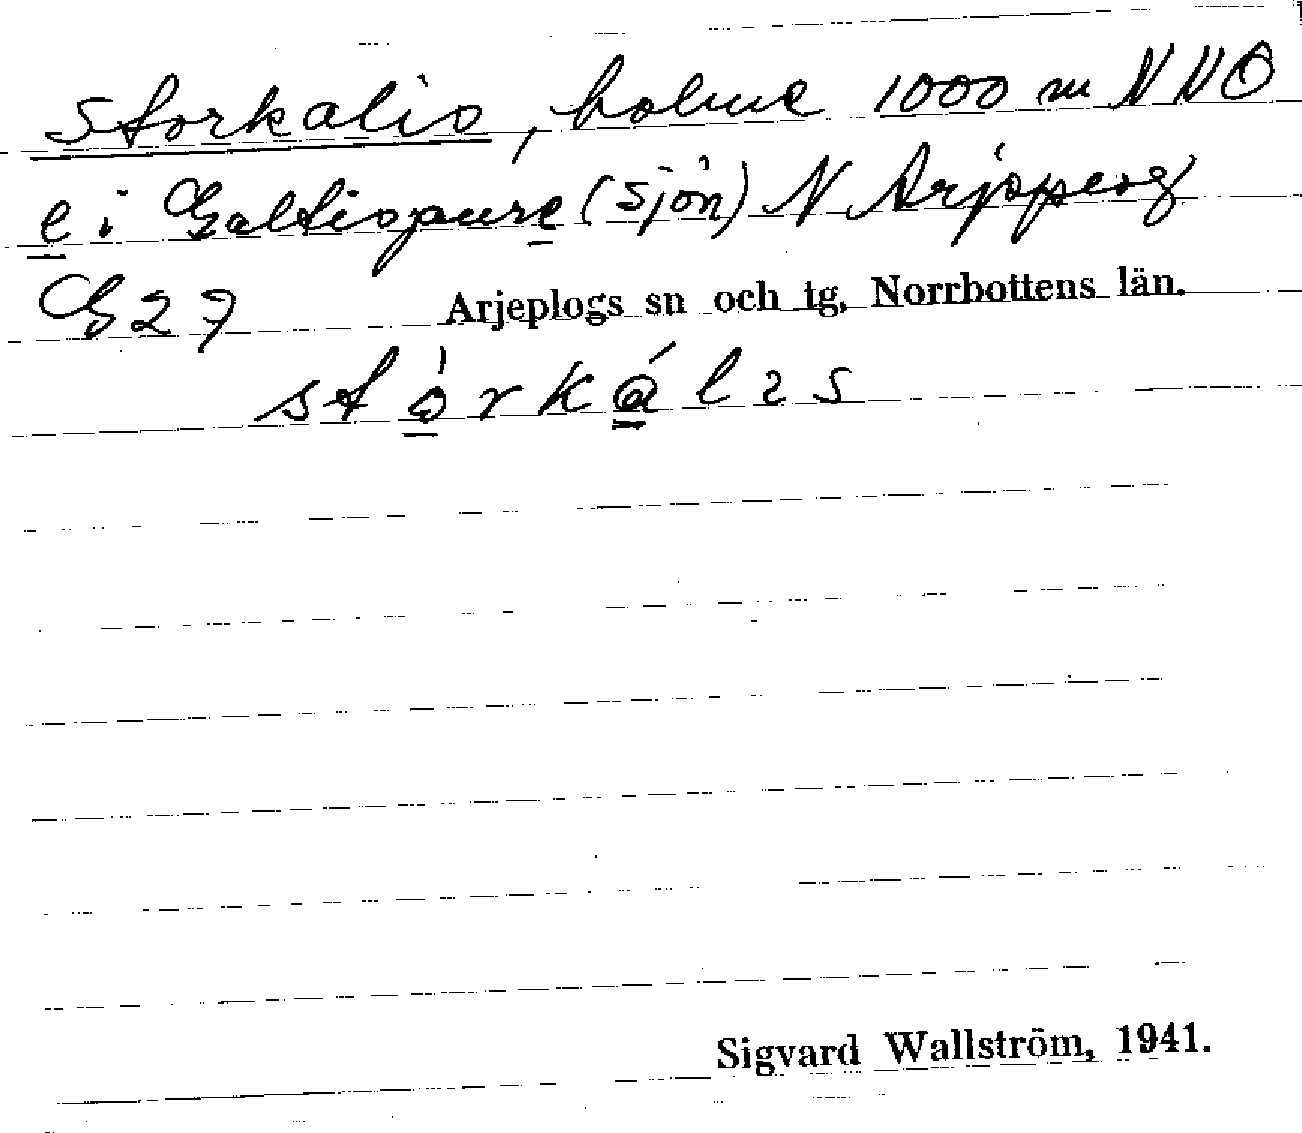 Storkalis, holme 1000 m NNO
e i Galtispure (sjön) N Arjepog
G 27 Arjeplogs sn och tg, Norrbottens län.
stórkálıs
Sigvard Wallström, 1941.